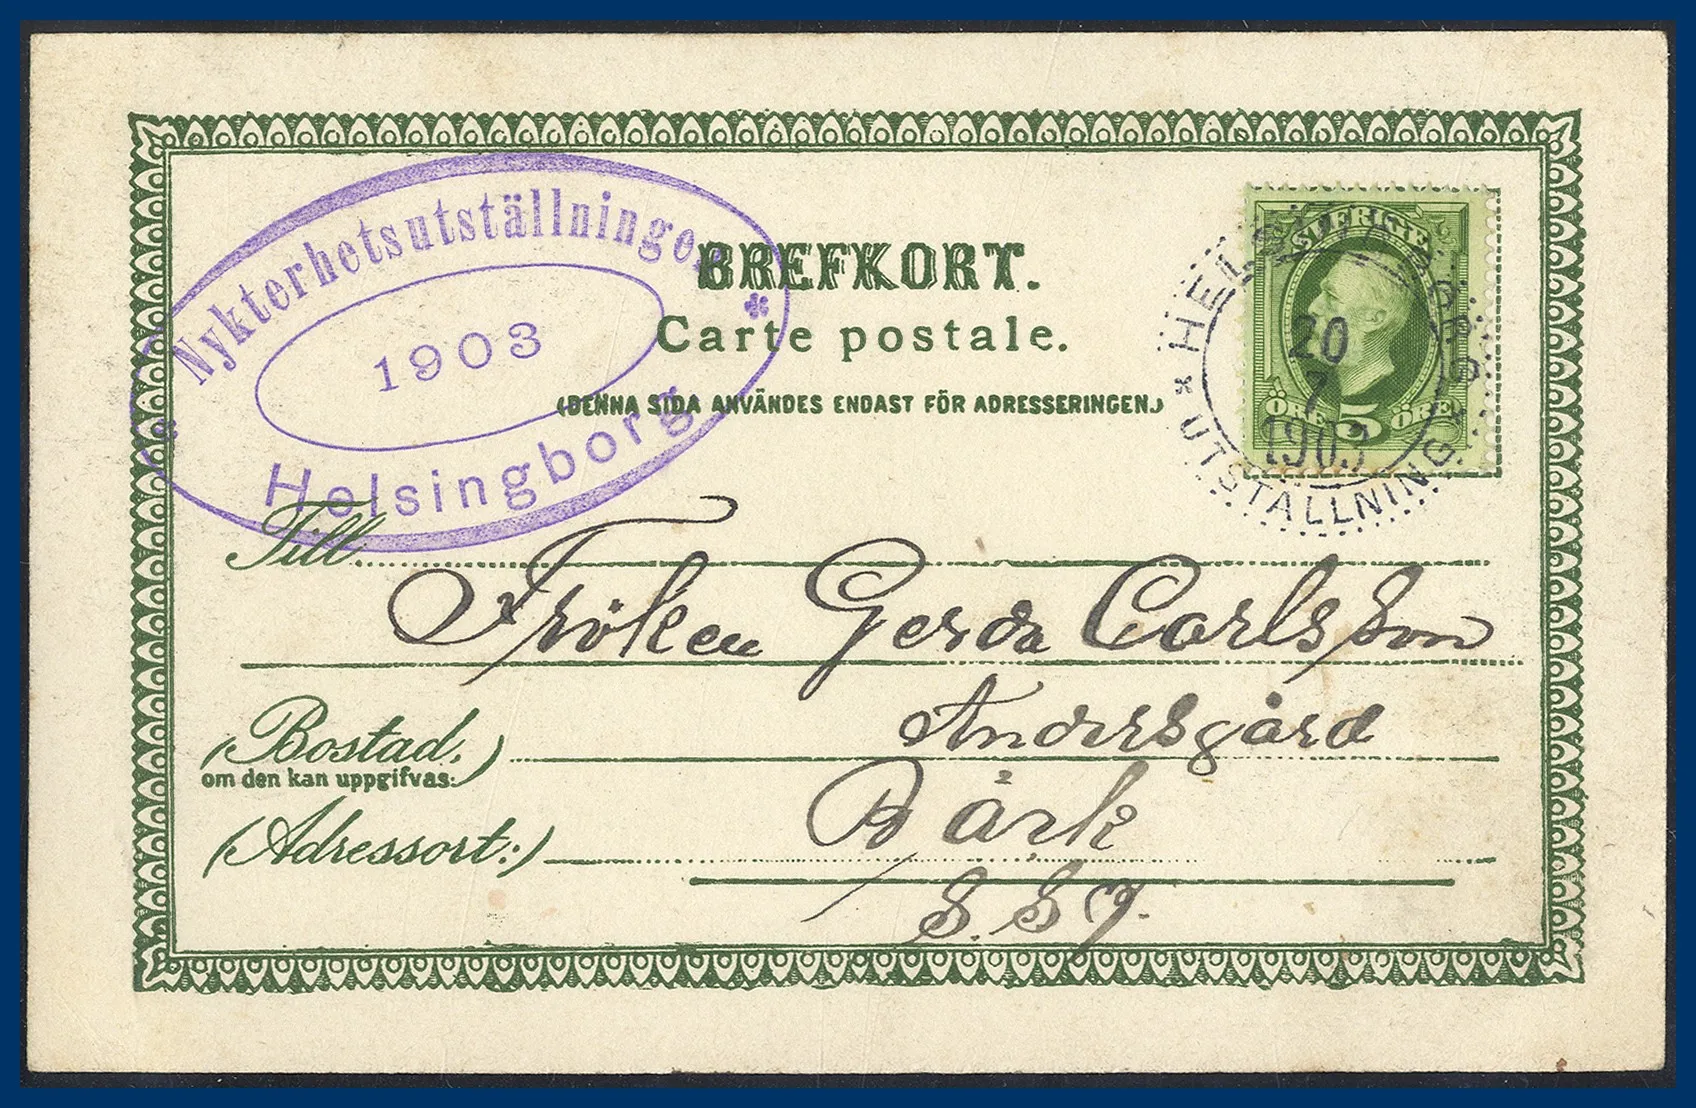 Nykterhetsutställningen
1903
Helsingborg
BREFKORT.
Carte postale.
(DENNA SIDA ANVÄNDES ENDAST FÖR ADRESSERINGEN.)
SVERIGE
ÖRE 5 ÖRE
HELSINGBORG
20
7
1903
UTSTÄLLNING
Till
Fröken Gerda Carlsson
(Bostad.)
om den kan uppgifvas:
Andersgård
(Adressort:)
Bårk